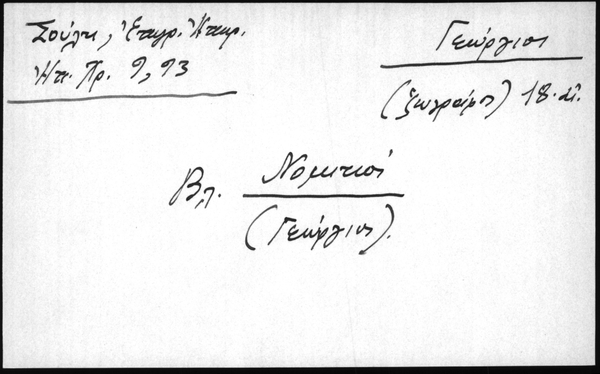 Σούλη, Ἐπιγρ. Ἠπειρ.
Ἠπ. Χρ. 9, 93
Γεώργιος
(ζωγράφος) 18. αἰ.
Βλ.
(Γεώργιος).